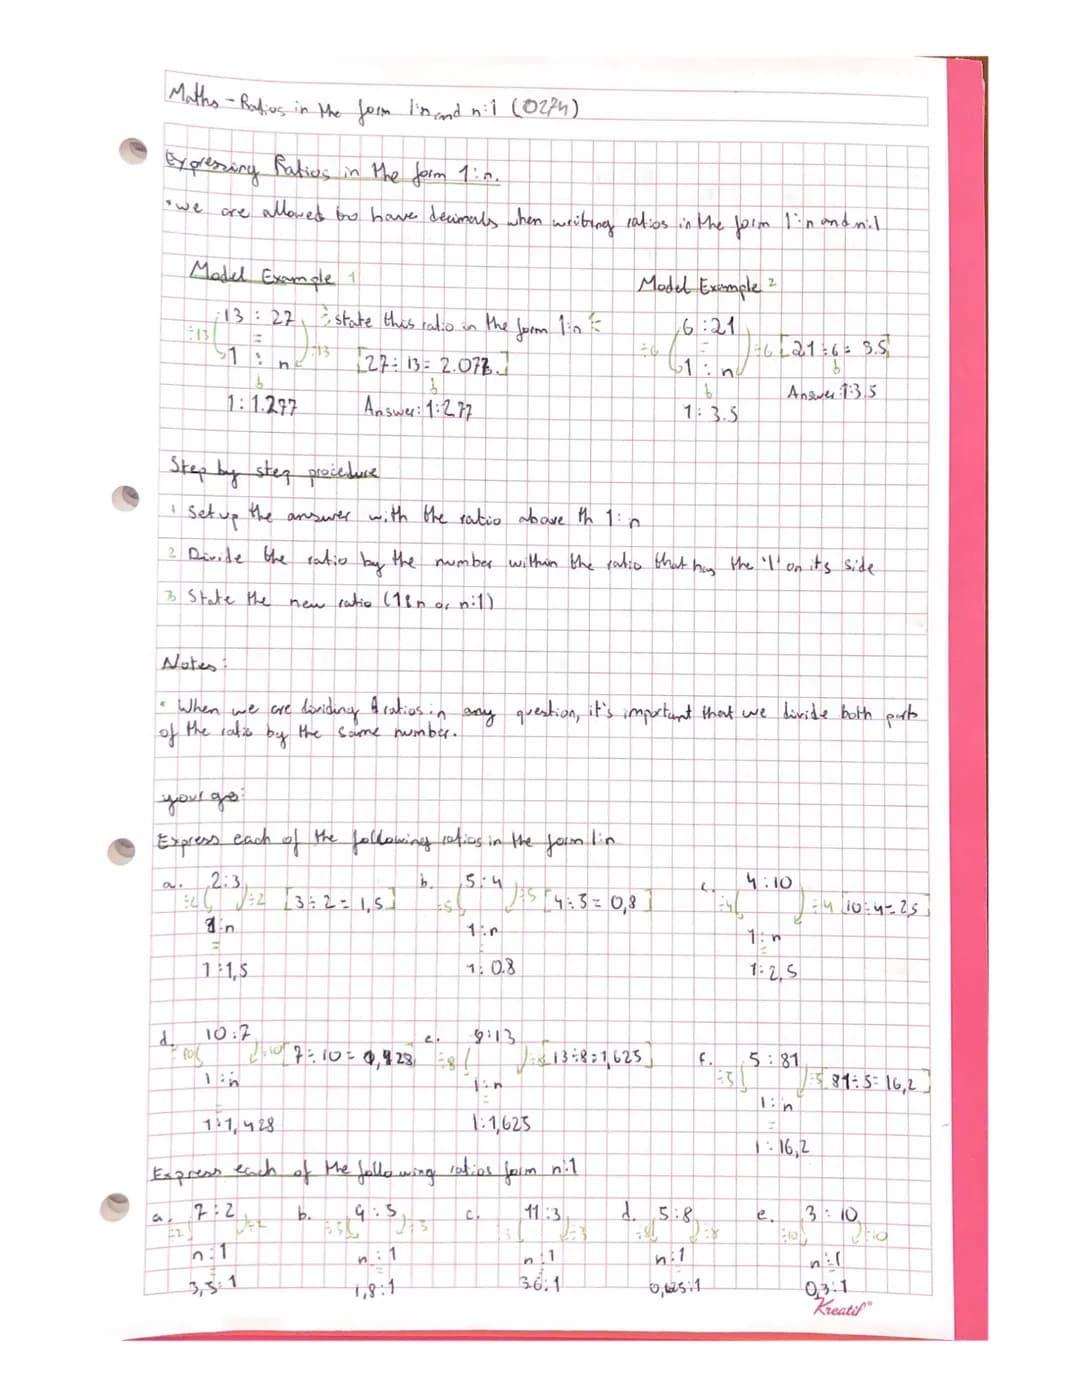 Maths - Ratios in the form 1:n and n:1 (0274)
Expressing Ratios in the form 1:n.
• we are allowed to have decimals when writing ratios in the form 1:n and n:1
Model Example 1
Model Example 2
13 : 27 state this ratio in the form 1:n
÷13 ÷13
=
1 : n [27÷13=2.077.]
1:1.277 Answer: 1:277
6:21
÷6 ÷6 [21÷6= 3.5]
=
1 : n
Answer 1:3.5
1: 3.5
Step by step procedure
1 Set up the answer with the ratio above th 1:n
2 Divide the ratio by the number within the ratio that has the '1' on its side
3 State the new ratio (1:n or n:1)
Notes:
• When we are dividing ratios in any question, it's important that we divide both parts
of the ratio by the same number.
your go:
Express each of the following ratios in the form 1:n
a. 2:3 b. 5:4 c. 4:10
÷2 ÷2 [3÷2=1,5] ÷5 ÷5 [4÷5=0,8] ÷4 ÷4 [10÷4=25]
1:n 1:n 1:n
=
1:1,5 1:0.8 1:2,5
d. 10:7 e. 8:13 f. 5:81
÷10 ÷10 [7÷10= ÷8 ÷8 [13÷8=1,625] ÷5 ÷5 81÷5=16,2]
1:n 1:n 1:n
=
1:1,428 1:1,625 1:16,2
Express each of the following ratios form n:1
a. 7:2 b. 9:5 c. 11:3 d. 5:8 e. 3:10
÷2 ÷2 ÷5 ÷5 ÷3 ÷8 ÷8 ÷10 ÷10
n:1 n:1 n:1 n:1 n:1
3,5:1 1,8:1 3.6:1 0,625:1 0,3:1
Kreatif